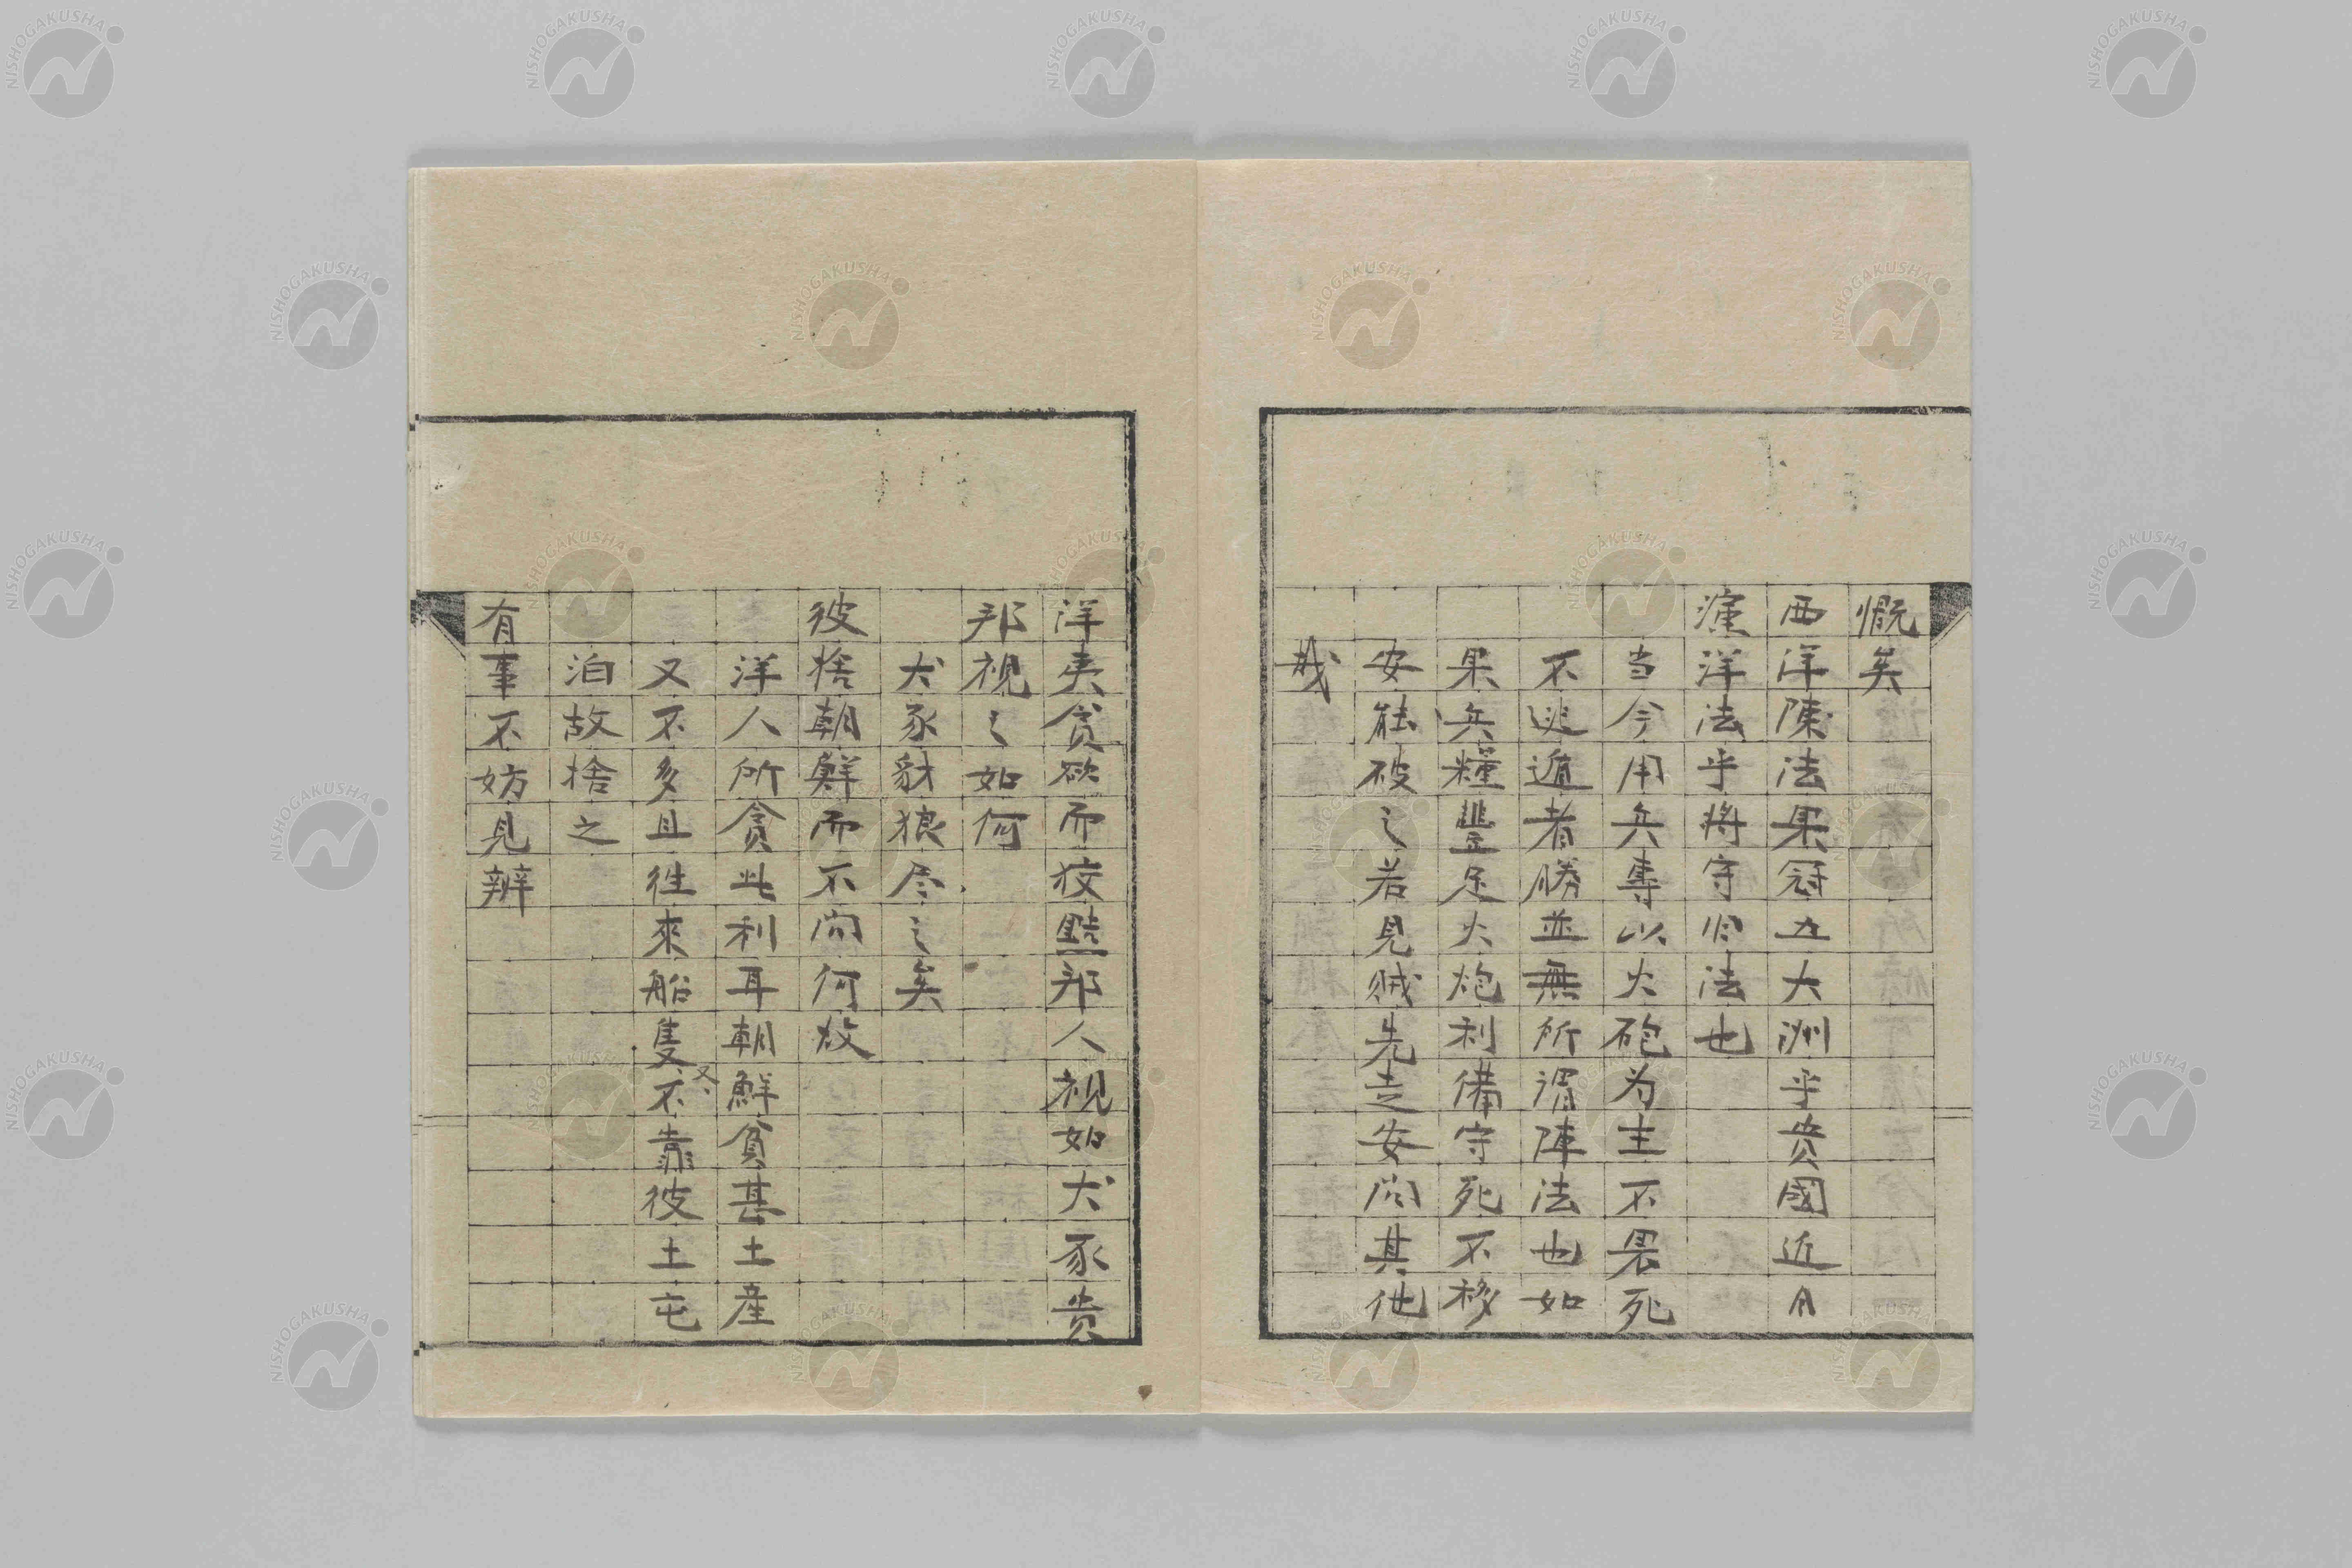 慨矣
西洋陳法果冠五大洲乎貴國近今
演洋法乎將守旧法也
当今用兵專以火砲为主不畏死
不逃遁者勝並無所謂陣法也如
果兵糧豐足火炮利備守死不移
安能破之若見賊先走安問其他
哉
洋夷貪欲而狡黠邦人視如犬豕貴
邦視之如何
犬豕豺狼尽之矣
彼捨朝鮮而不問何故
洋人所貪此利耳朝鮮貧甚土産
又不多且往來船隻又不靠彼土屯
泊故捨之
有事不妨見辨
NISHOGAKUSHA